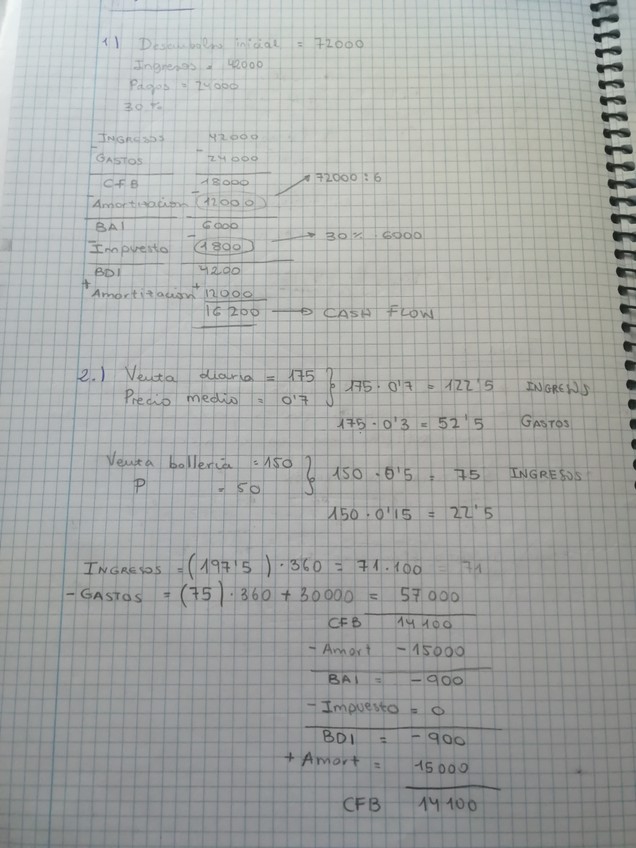 1) Desembolso inicial = 72000
Ingresos = 42000
Pagos = 24000
30 %
INGRESOS 42000
- GASTOS - 24000
CFB 18000
- Amortización - 12000 → 72000 : 6
BAI 6000
- Impuesto - 1800 → 30% 6000
BDI 4200
+ Amortitación + 12000
16 200 → CASH FLOW
2.) Venta diaria = 175
Precio medio = 0'7 } 175 · 0'7 = 122'5 INGRESOS
175 · 0'3 = 52'5 GASTOS
Venta bolleria = 150
P = 50 } 150 · 0'5 = 75 INGRESOS
150 · 0'15 = 22'5
INGRESOS = (197'5) · 360 = 71.100 = 71
- GASTOS = (75) · 360 + 30000 = 57 000
CFB 14 100
- Amort - 15000
BAI = - 900
- Impuesto = 0
BDI = - 900
+ Amort = 15000
CFB 14 100